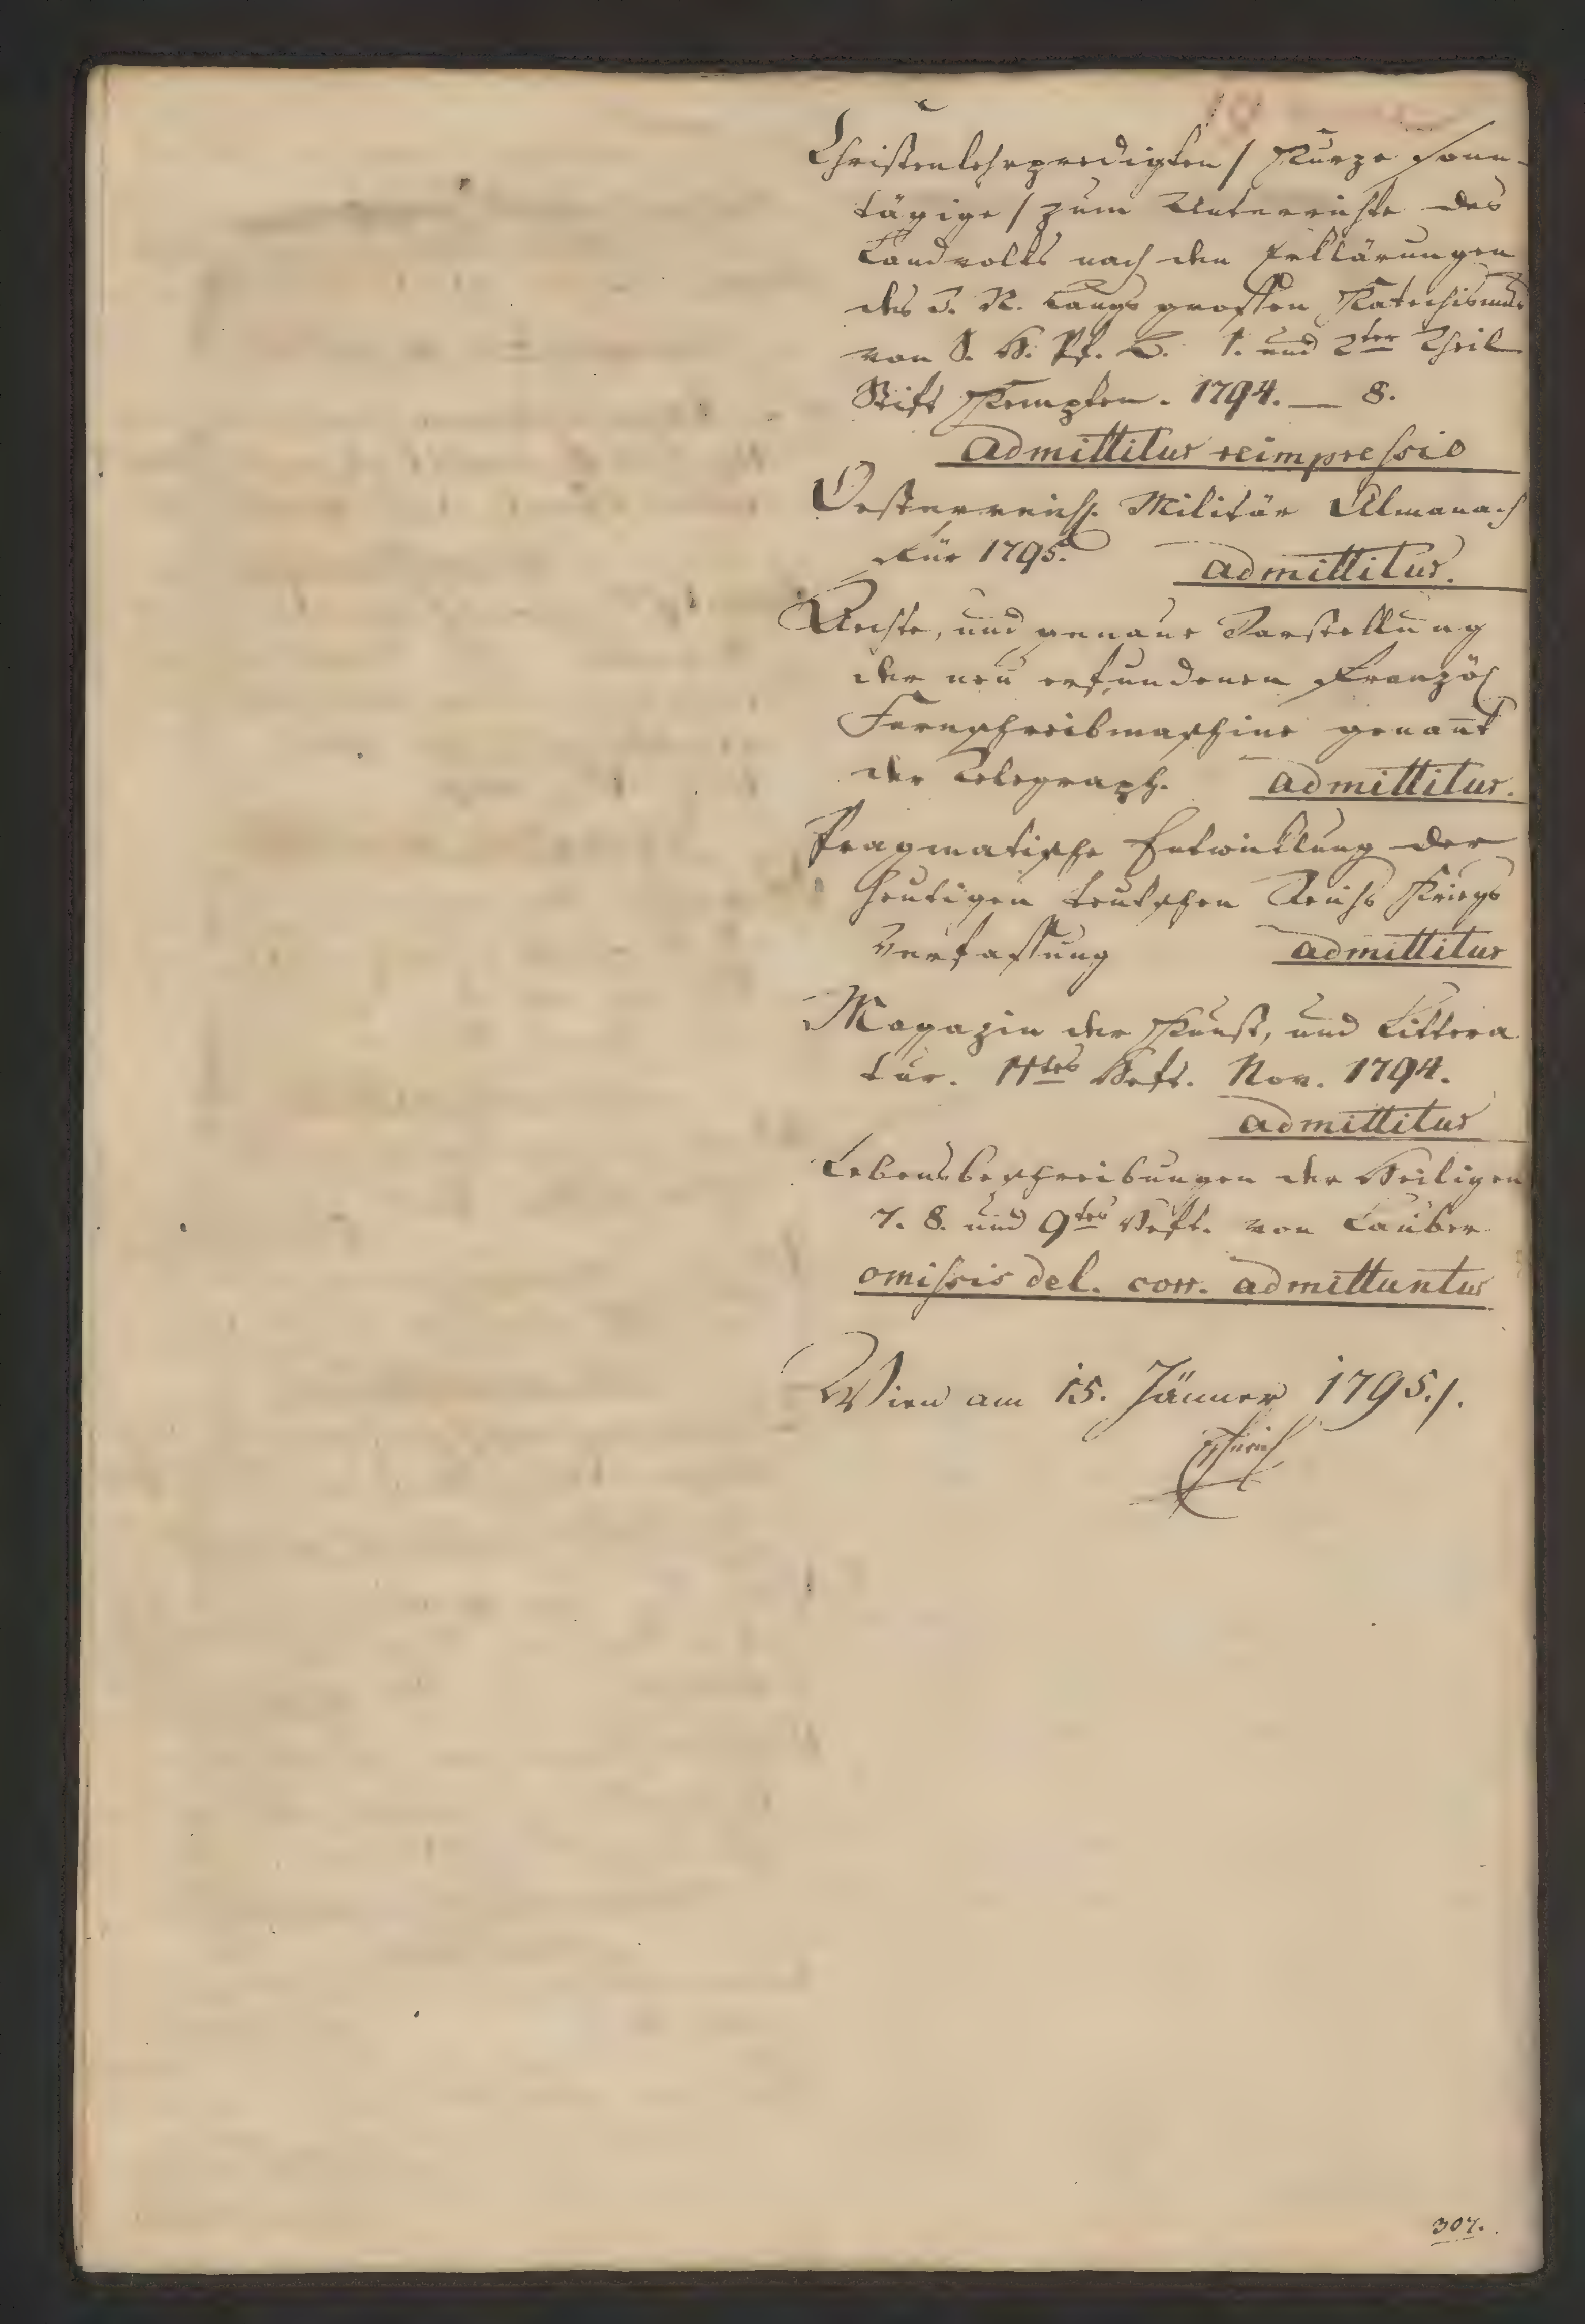 Christenlehrpredigten / Kurze sonn-
tägige / zum Unterrichte des
Landvolks nach den Erklärungen
des T. R. Langs grossen Katechismus
von S. H. Pf. L. 1. und 2ter Theil
Stift Kempten. 1794. — 8.
admittitur reimpressio
Oesterreich. Militär Almanach
für 1795. admittitur.
Aechte, und genaue Darstellung
der neu erfundenen Französ
Fernschreibmaschine genañt
der Telegraph. admittitur.
Pragmatische Entwicklung der
heutigen teutschen Reichs Kriegs
Verfassung admittitur
Magazin der Kunst, und Littera
tur. 11tes Heft. Nov. 1794.
admittitur
Lebensbeschreibungen der Heiligen
7. 8. und 9tes Heft. von Lauber
omissis del. corr. admittuntur
Wien am 15. Jänner 1795./.
307.